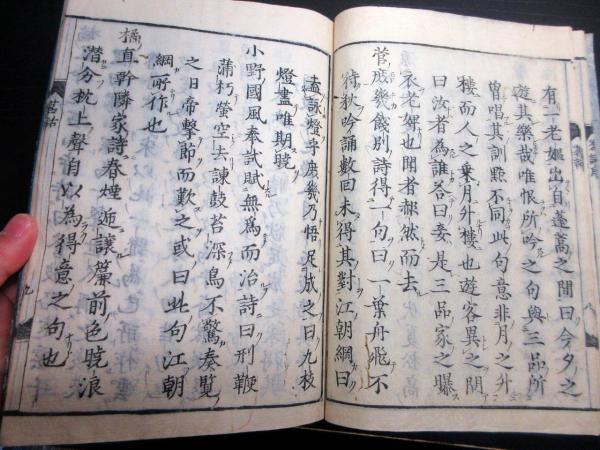 有一老嫗出自蓬蒿之間曰今夕之
遊其樂哉唯恨所吟之句與三品所
曾唱其訓點不同此句意非月之升
樓而人之乗月升樓也遊客異之問
曰汝者為誰答曰妾是三品家之曝
衣老婢也聞者赧然而去
菅庶幾餞別詩得一句曰一葉舟飛不
待秋吟誦數回未得其對江朝綱曰
盍詠燈乎庶幾乃悟足成之曰九枝
燈盡唯期曉
小野國風奉試賦無為而治詩曰刑鞭
蒲朽螢空去諫鼓苔深鳥不驚奏覽
之日帝擊節而歎之或曰此句江朝
綱所作也
橘直幹隣家詩春煙逓讓簾前色曉浪
潜分枕上聲自以為得意之句也